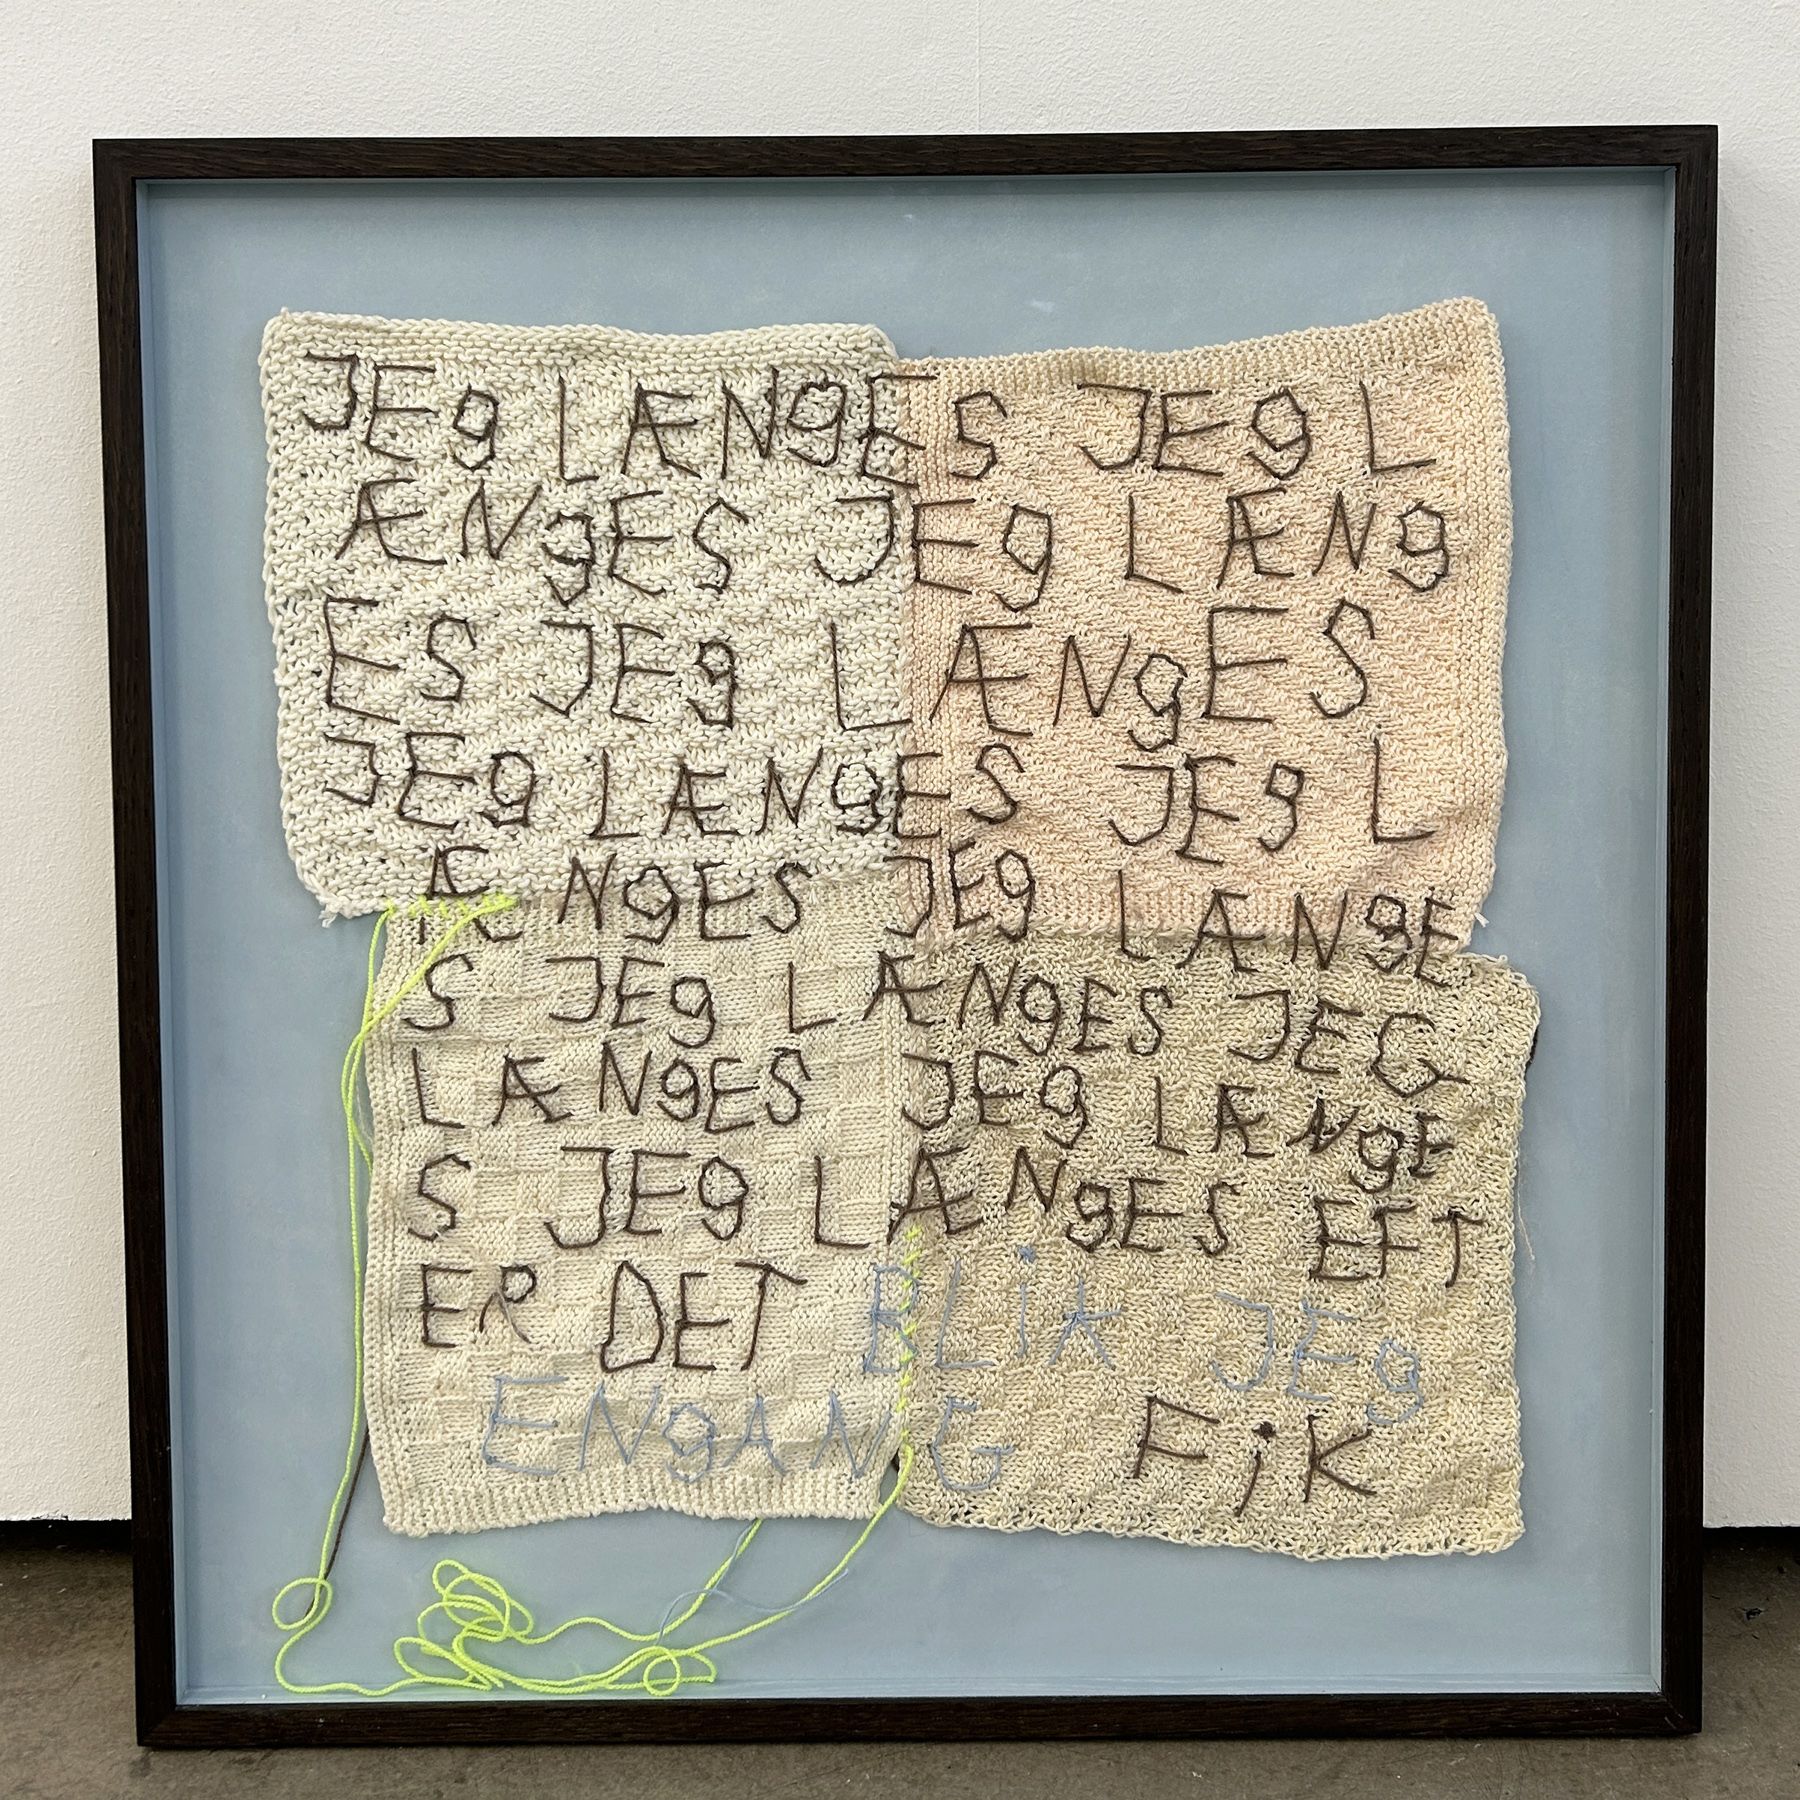 JEg LÆNgES JEg L
ÆNgES JEg LÆNg
ES JEg LÆNgES
JEg LÆNgES JEg L
ÆNgES JEg LÆNgE
S JEg LÆNgES JEG
LÆNgES JEg LÆNgE
S JEg LÆNgES EFT
ER DET BLiK JEg
ENgANG FiK